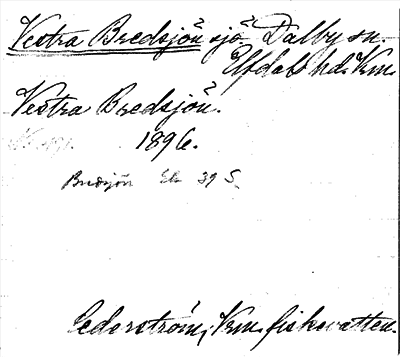 Vestra Bredsjön sjö Dalby sn.
Elfdals hd. Vrm.
Vestra Bredsjön.
1896.
Bredsjön Ek 39 S.
Cederström, Vrm. fiskevatten.